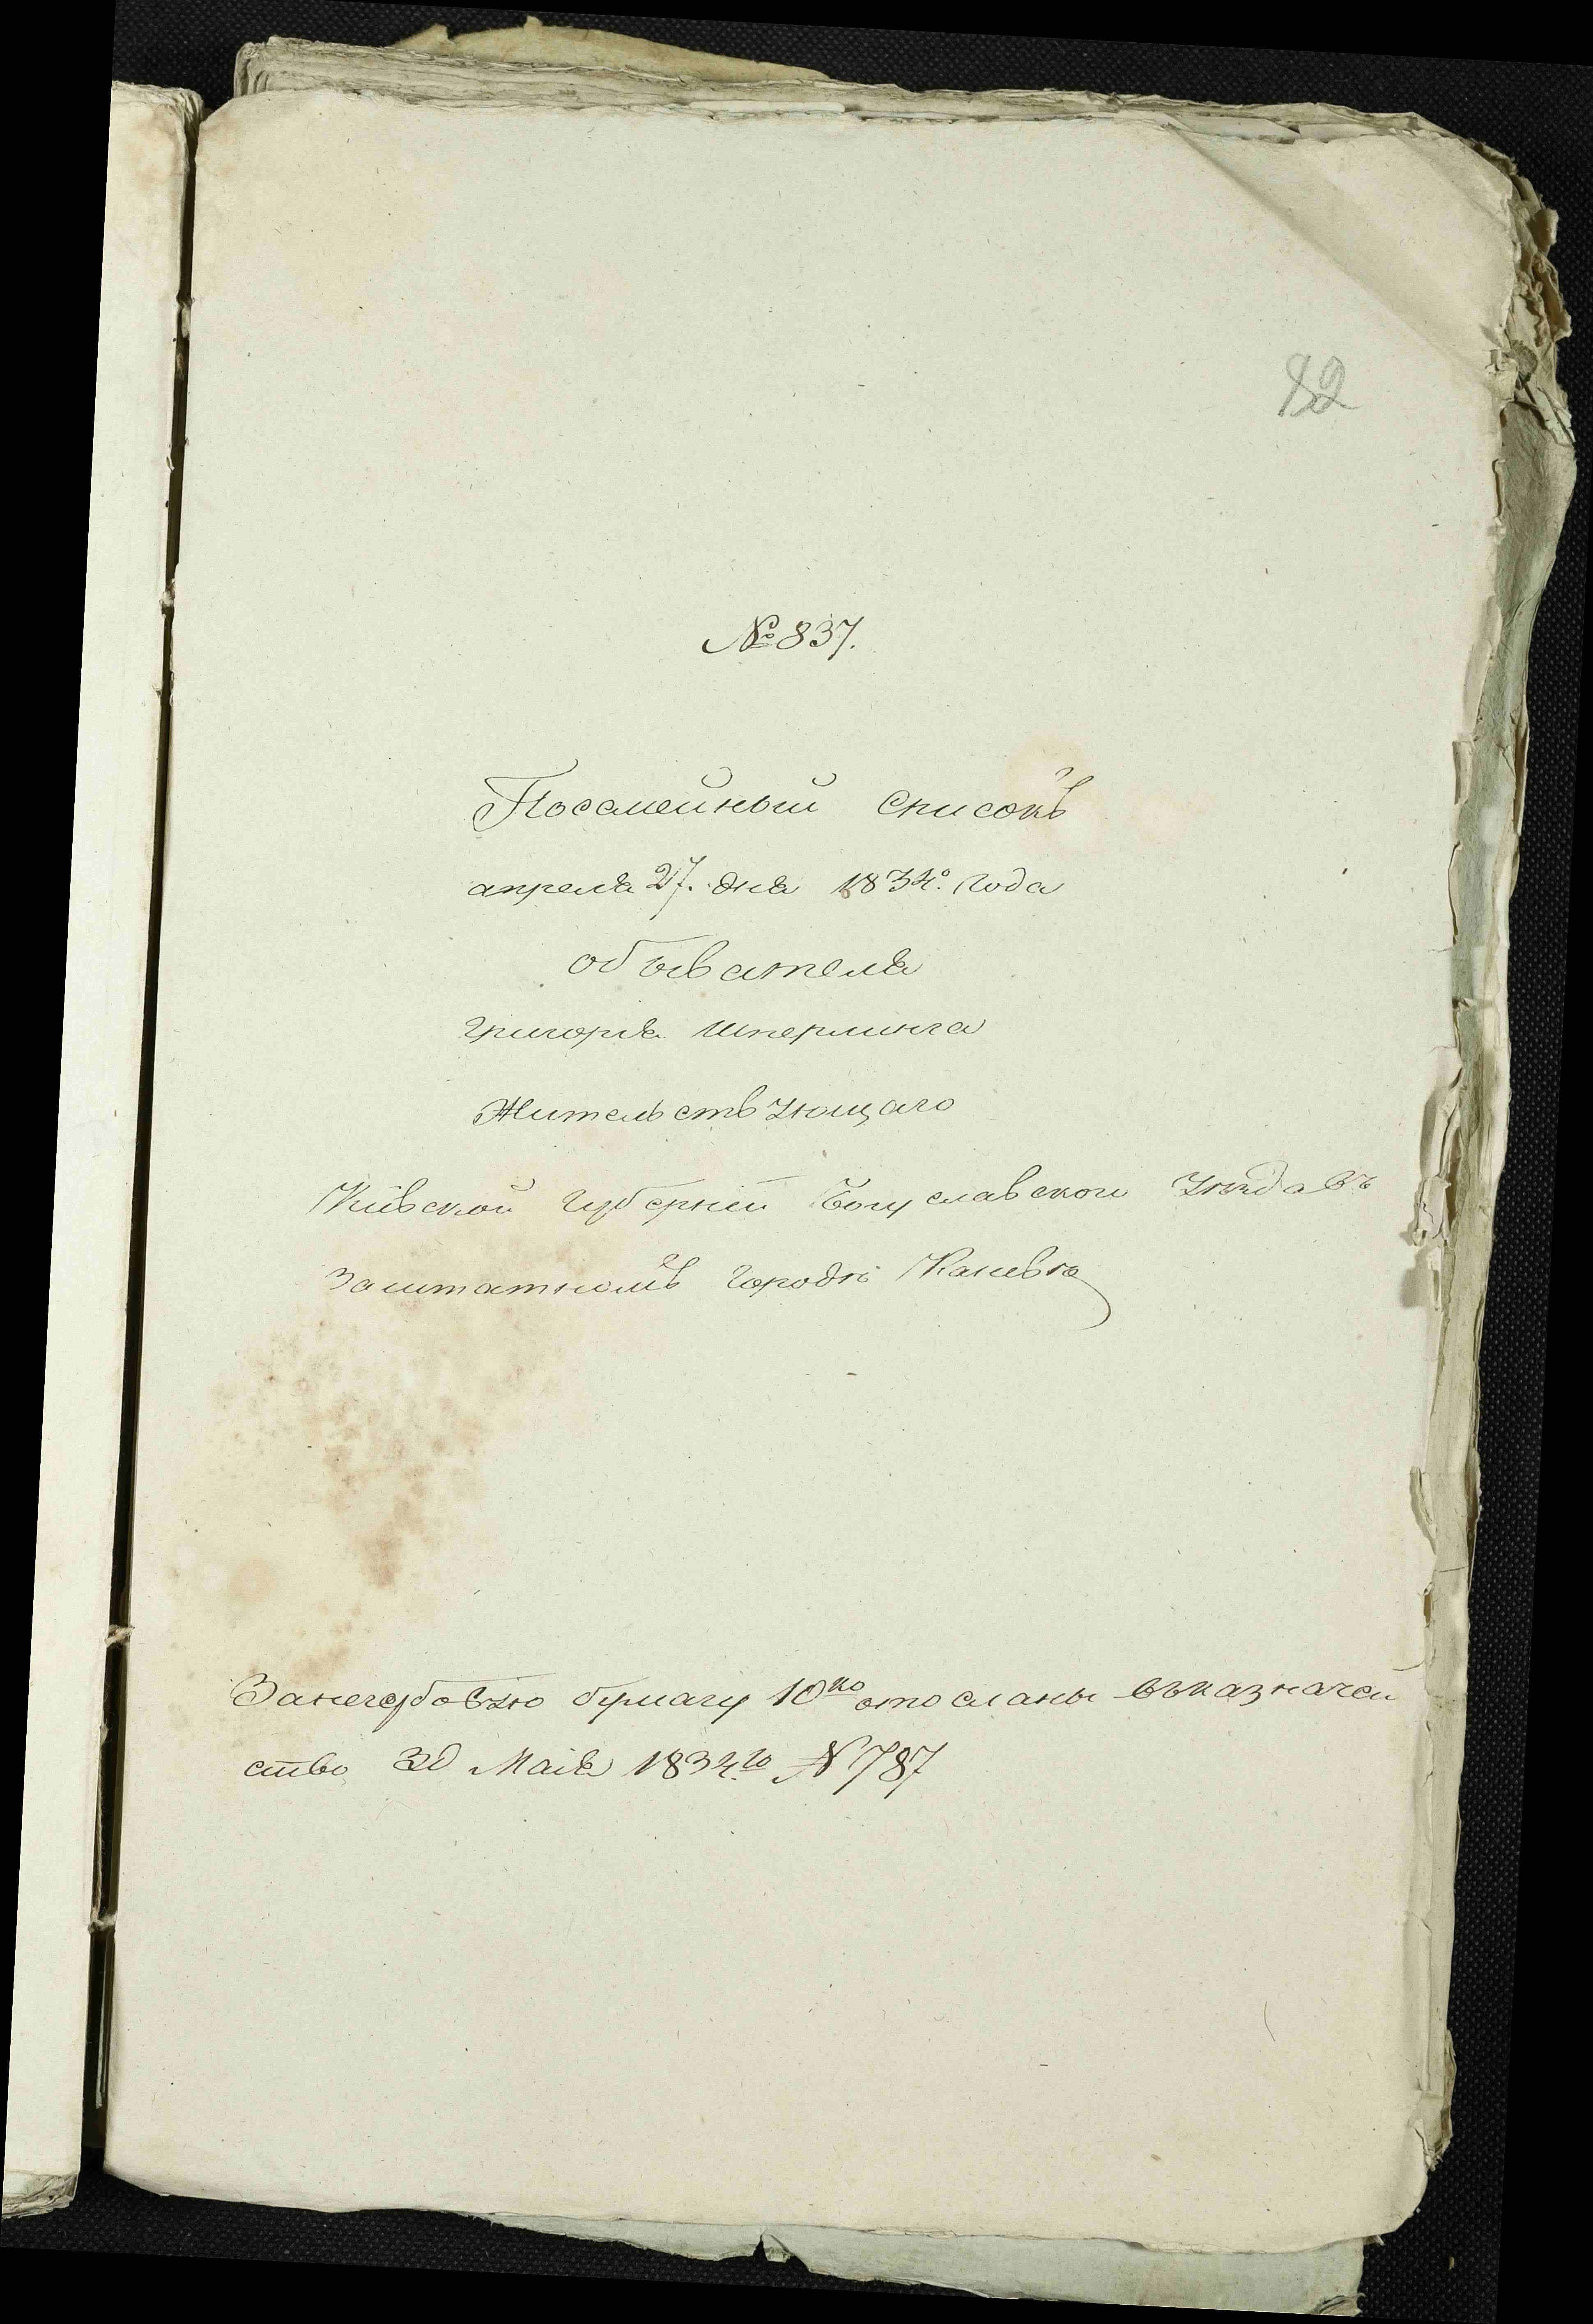 82
№ 837.
Посемейный списокъ
апреля 27. дня 1834º. года
обывателя
григорія Шперлинга
Жительствующаго
Кіевской губерніи Богуславского уѣзда въ
Заштатномъ городѣ Каневѣ
За негербовую бумагу 10 ко отосланы въ казначей
ство 3д Маія 1834го № 787